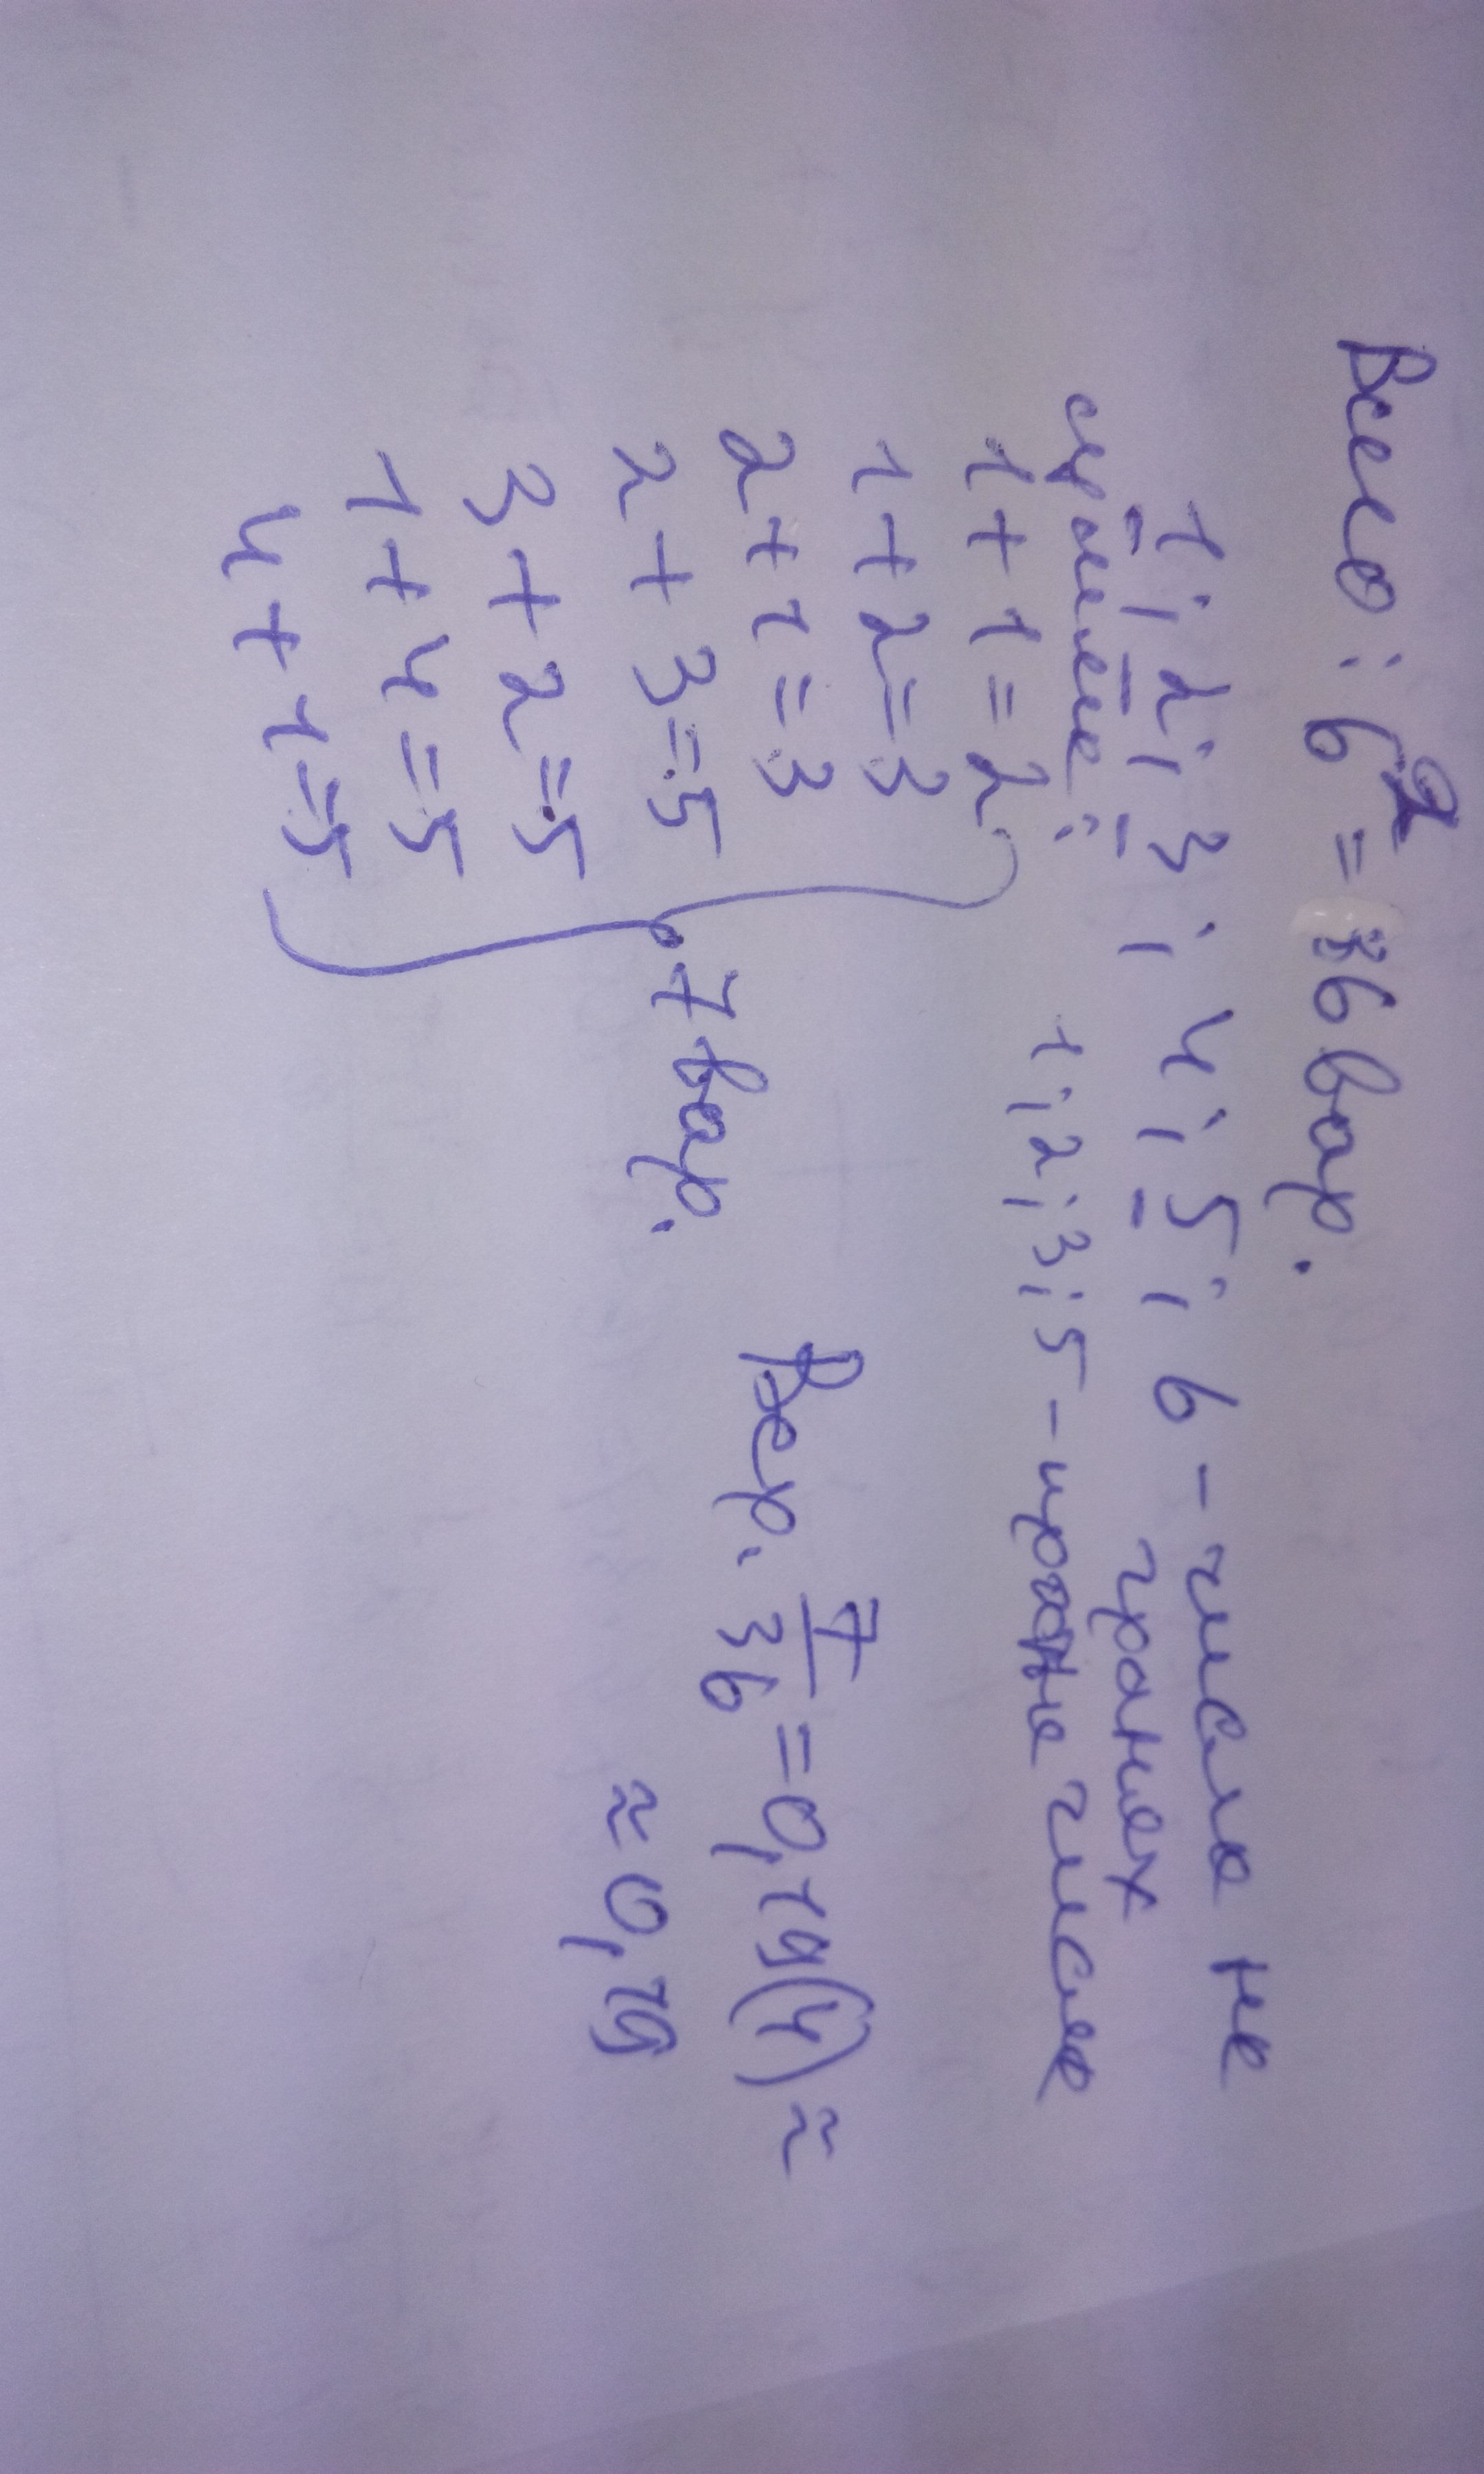 Всего: 6² = 36 вар.
1; 2; 3; 4; 5; 6 - числа на
гранях
1; 2; 3; 5 - простые числа
1 + 1 = 2
1 + 2 = 3
2 + 1 = 3
2 + 3 = 5
3 + 2 = 5
1 + 4 = 5
4 + 1 = 5
7 вар.
Вер. 7/36 = 0,19(4) ≈
≈ 0,19